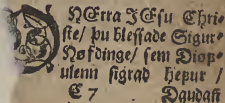 DRrra JEsu Chri⸗
ste/ þu blessade Sigur⸗
Høfdinge/ sem Diøp⸗
ulenn sigrad hefur /
C 7 Daudañ